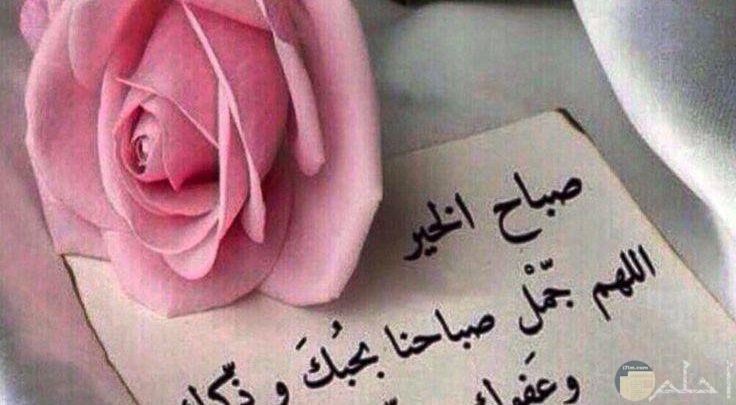 صباح الخير
اللهم جمّلْ صباحنا بحُبكَ و ذكرك
وعَفوك
حلم
i7lm.com